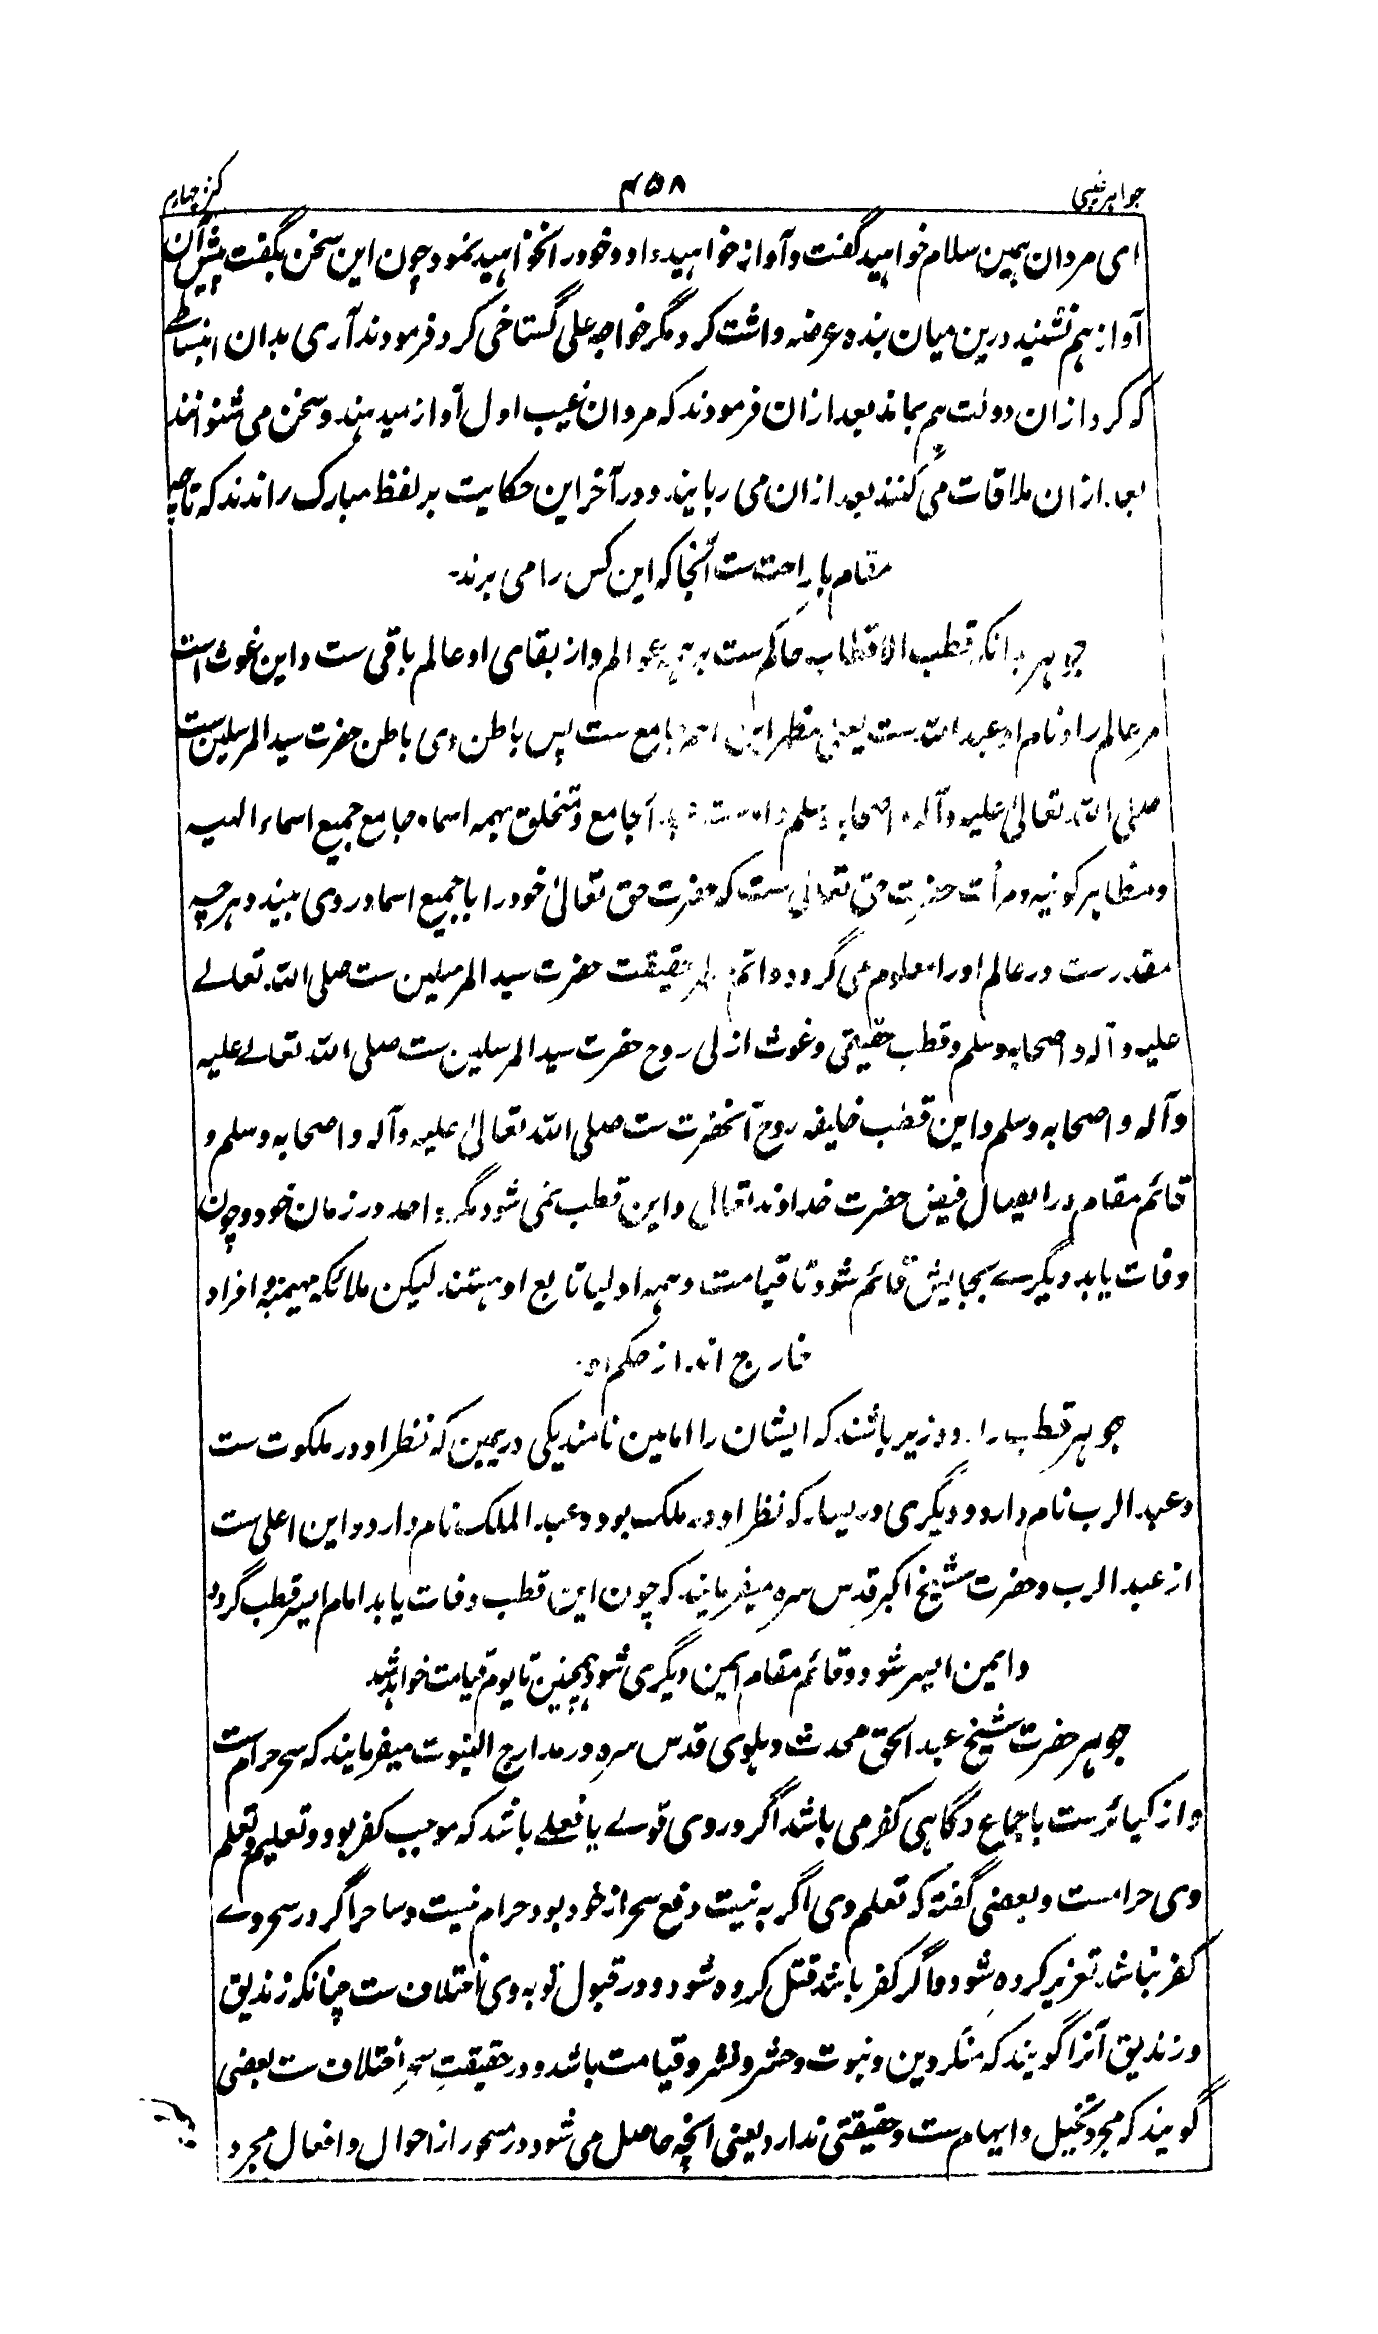 جواہر غیبی ۴۵۸ کنز چہارم
ای مردان ہمین سلام خواہید گفت و آواز خواہید داد و خود را نخواہید نمود چون این سخن بگفت پیش آن
آواز ہم نشنید درین میان بندہ عرضداشت کرد مگر خواجہ علی گستاخی کرد فرمودند آری بدان انبساطے
کہ کرد ازان دولت ہم بماند بعد ازان فرمودند کہ مردان غیب اول آواز میدہند و سخن می شنوانند
بعد ازان ملاقات می کنند بعد ازان می ربایند و در آخر این حکایت بر لفظ مبارک راندند کہ تا چہ
مقام باراحت ست آنجا کہ این کس را می برند
جوہر بدانکہ قطب الاقطاب حاکم ست بر ہمہ عوالم و از بقای او عالم باقی ست و این غوث است
مر عالم را و نام او عبد اللہ ست یعنی مظہر این اسم جامع ست پس باطن وی باطن حضرت سید المرسلین ست
صلی اللہ تعالی علیہ و آلہ و اصحابہ وسلم و جامع و متخلق بہمہ اسماء جامع جمیع اسماء الہیہ
و مظاہر کونیہ و مرأت حضرت حق تعالی ست کہ حضرت حق تعالی خود را با جمیع اسما در وی بیند و ہر چہ
مقدر ست در عالم او را معلوم می گردد و اتم حقیقت حضرت سید المرسلین ست صلی اللہ تعالے
علیہ و آلہ و اصحابہ وسلم و قطب حقیقی و غوث ازلی روح حضرت سید المرسلین ست صلی اللہ تعالے علیہ
و آلہ و اصحابہ وسلم و این قطب خلیفہ روح آنحضرت ست صلی اللہ تعالی علیہ و آلہ و اصحابہ وسلم و
قائم مقام در ایصال فیض حضرت خداوند تعالی و این قطب نمی شود مگر واحد در زمان خود و چون
وفات یابد دیگرے بجایش قائم شود تا قیامت و ہمہ اولیا تابع او ہستند لیکن ملائکہ مہیمنہ و افراد
خارج اند از حکم او
جوہر قطب را دو وزیر باشند کہ ایشان را امامین نامند یکی در یمین کہ نظر او در ملکوت ست
و عبد الرب نام دارد و دیگری در یسار کہ نظر او در ملک بود و عبد الملک نام دارد و این اعلی ست
از عبد الرب و حضرت شیخ اکبر قدس سرہ میفرمایند کہ چون این قطب وفات یابد امام ایسر قطب گردد
و ایمن ایسر شود و قائم مقام ایمن دیگری شود ہمچنین تا یوم قیامت خواہد شد
جوہر حضرت شیخ عبد الحق محدث دہلوی قدس سرہ در مدارج النبوت میفرمایند کہ سحر حرام ست
و از کبائر ست باجماع و گاہی کفر می باشد اگر در وی قولے یا فعلے باشد کہ موجب کفر بود و تعلیم و تعلم
وی حرامست و بعضی گفتہ کہ تعلم وی اگر بہ نیت دفع سحر از خود بود حرام نیست و ساحر اگر در سحر وے
کفر نباشد تعزیر کردہ شود و اگر کفر باشد قتل کردہ شود و در قبول توبہ وی اختلاف ست چنانکہ زندیق
و زندیق آنرا گویند کہ منکر دین و نبوت و حشر و نشر و قیامت باشد و در حقیقت سحر اختلاف ست بعضی
گویند کہ مجرد تخییل و ایہام ست و حقیقتی ندارد یعنی آنچہ حاصل می شود در مسحور از احوال و افعال مجرد